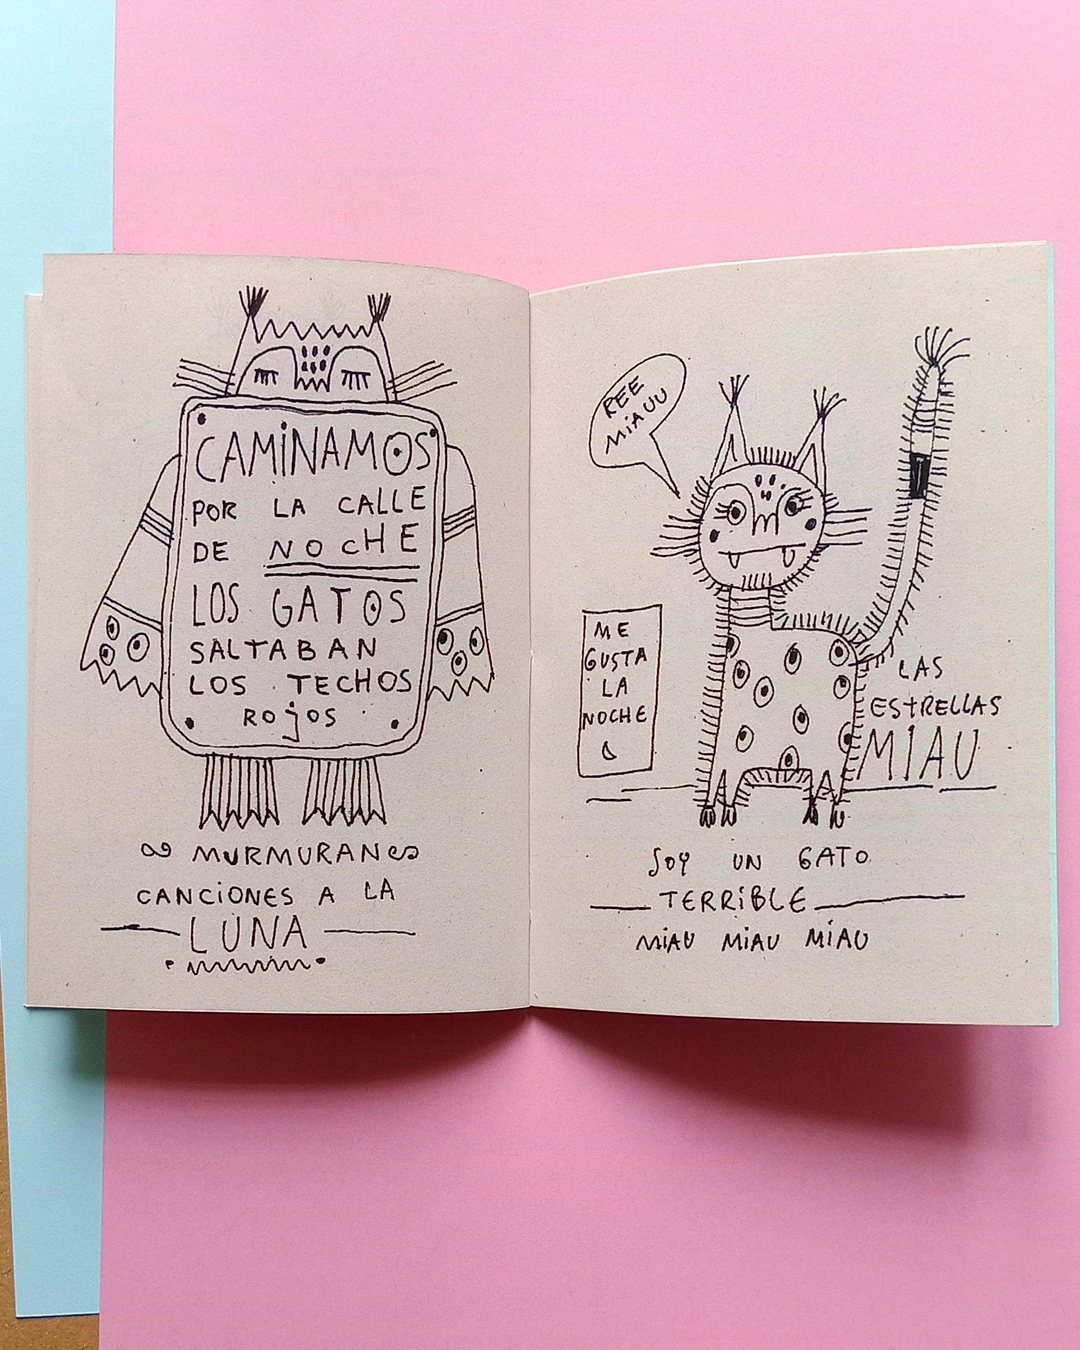 CAMINAMOS
POR LA CALLE
DE NOCHE
LOS GATOS
SALTABAN
LOS TECHOS
ROJOS
MURMURAN
CANCIONES A LA
LUNA
REE
MIAUU
ME
GUSTA
LA
NOCHE
LAS
ESTRELLAS
MIAU
SOY UN GATO
TERRIBLE
MIAU MIAU MIAU